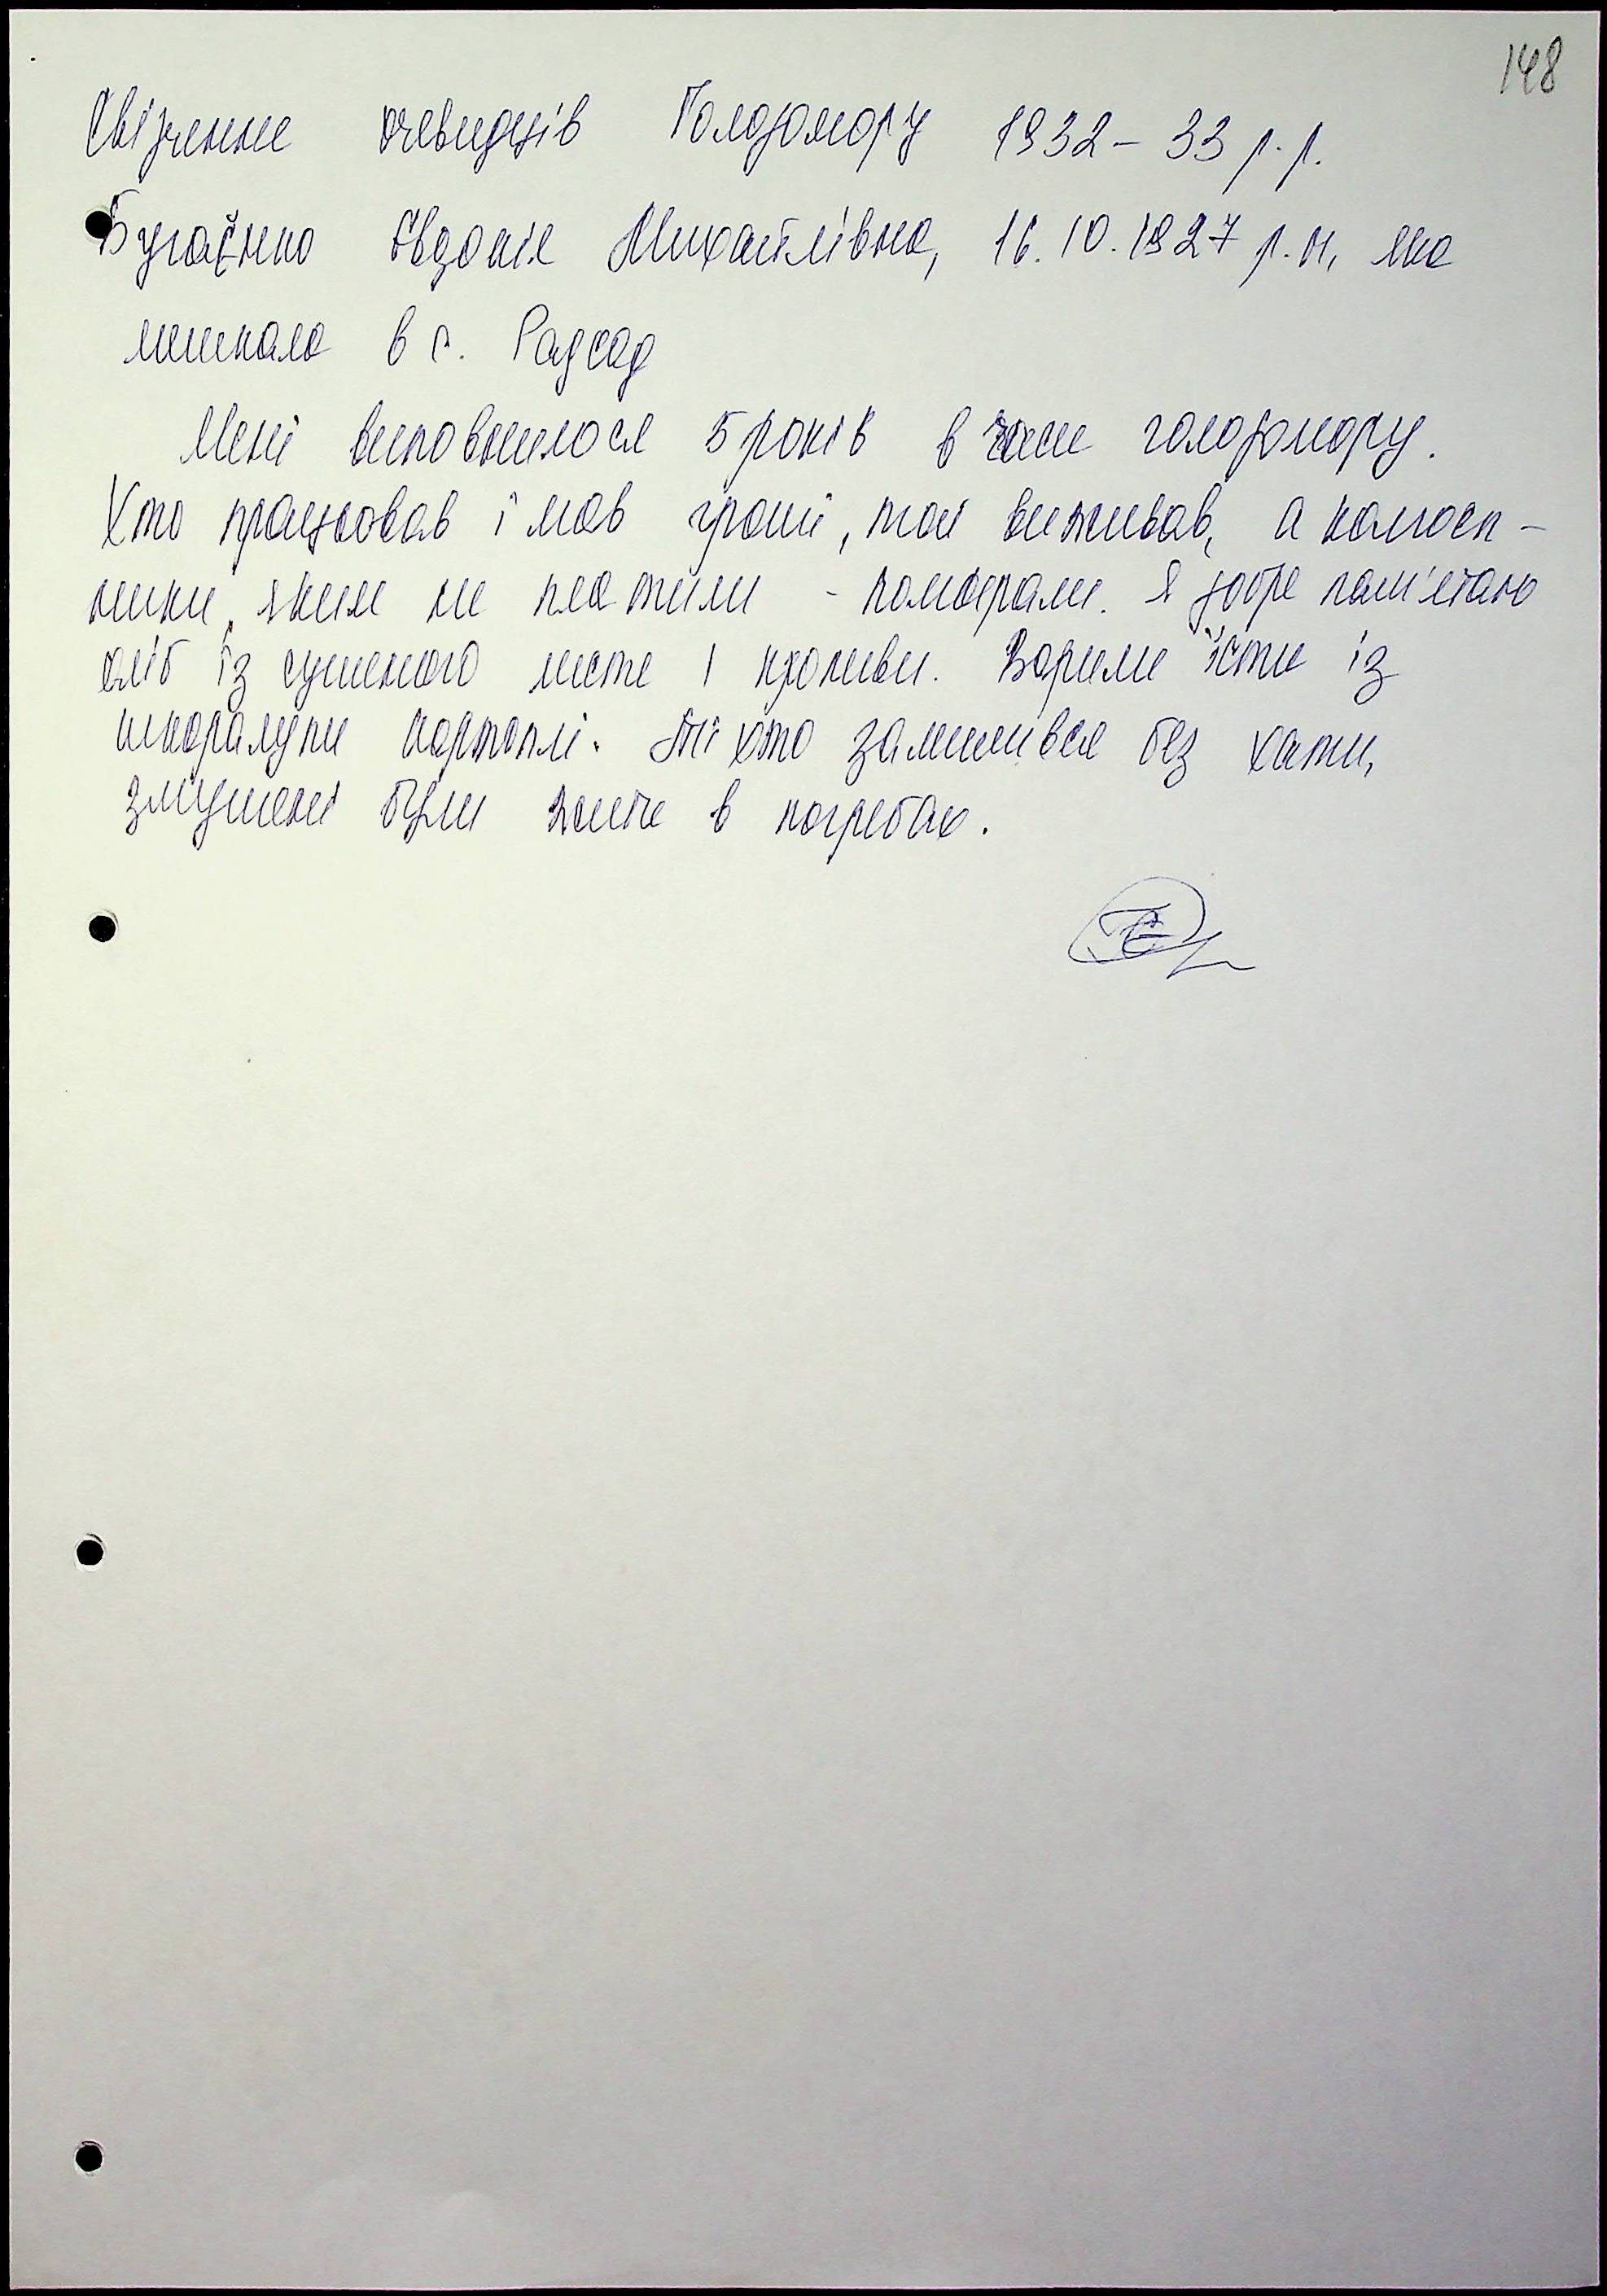 148
Свідчення очевидців Голодомору 1932-33 р.р.
Бугаєнко Євдокія Михайлівна, 16.10.1927 р.н, яка
мешкала в с. Радсад
Мені виповнилося 5 років в часи голодомору.
Хто працьовав і мав гроші, той виживав, а колгосп-
ники, яким не платили - помирали. Я добре пам'ятаю
хліб із сушеного листя і кропиви. Варили їсти із
шкоралупи картоплі. Ті хто залишився без хати,
змушені були жити в погребах.